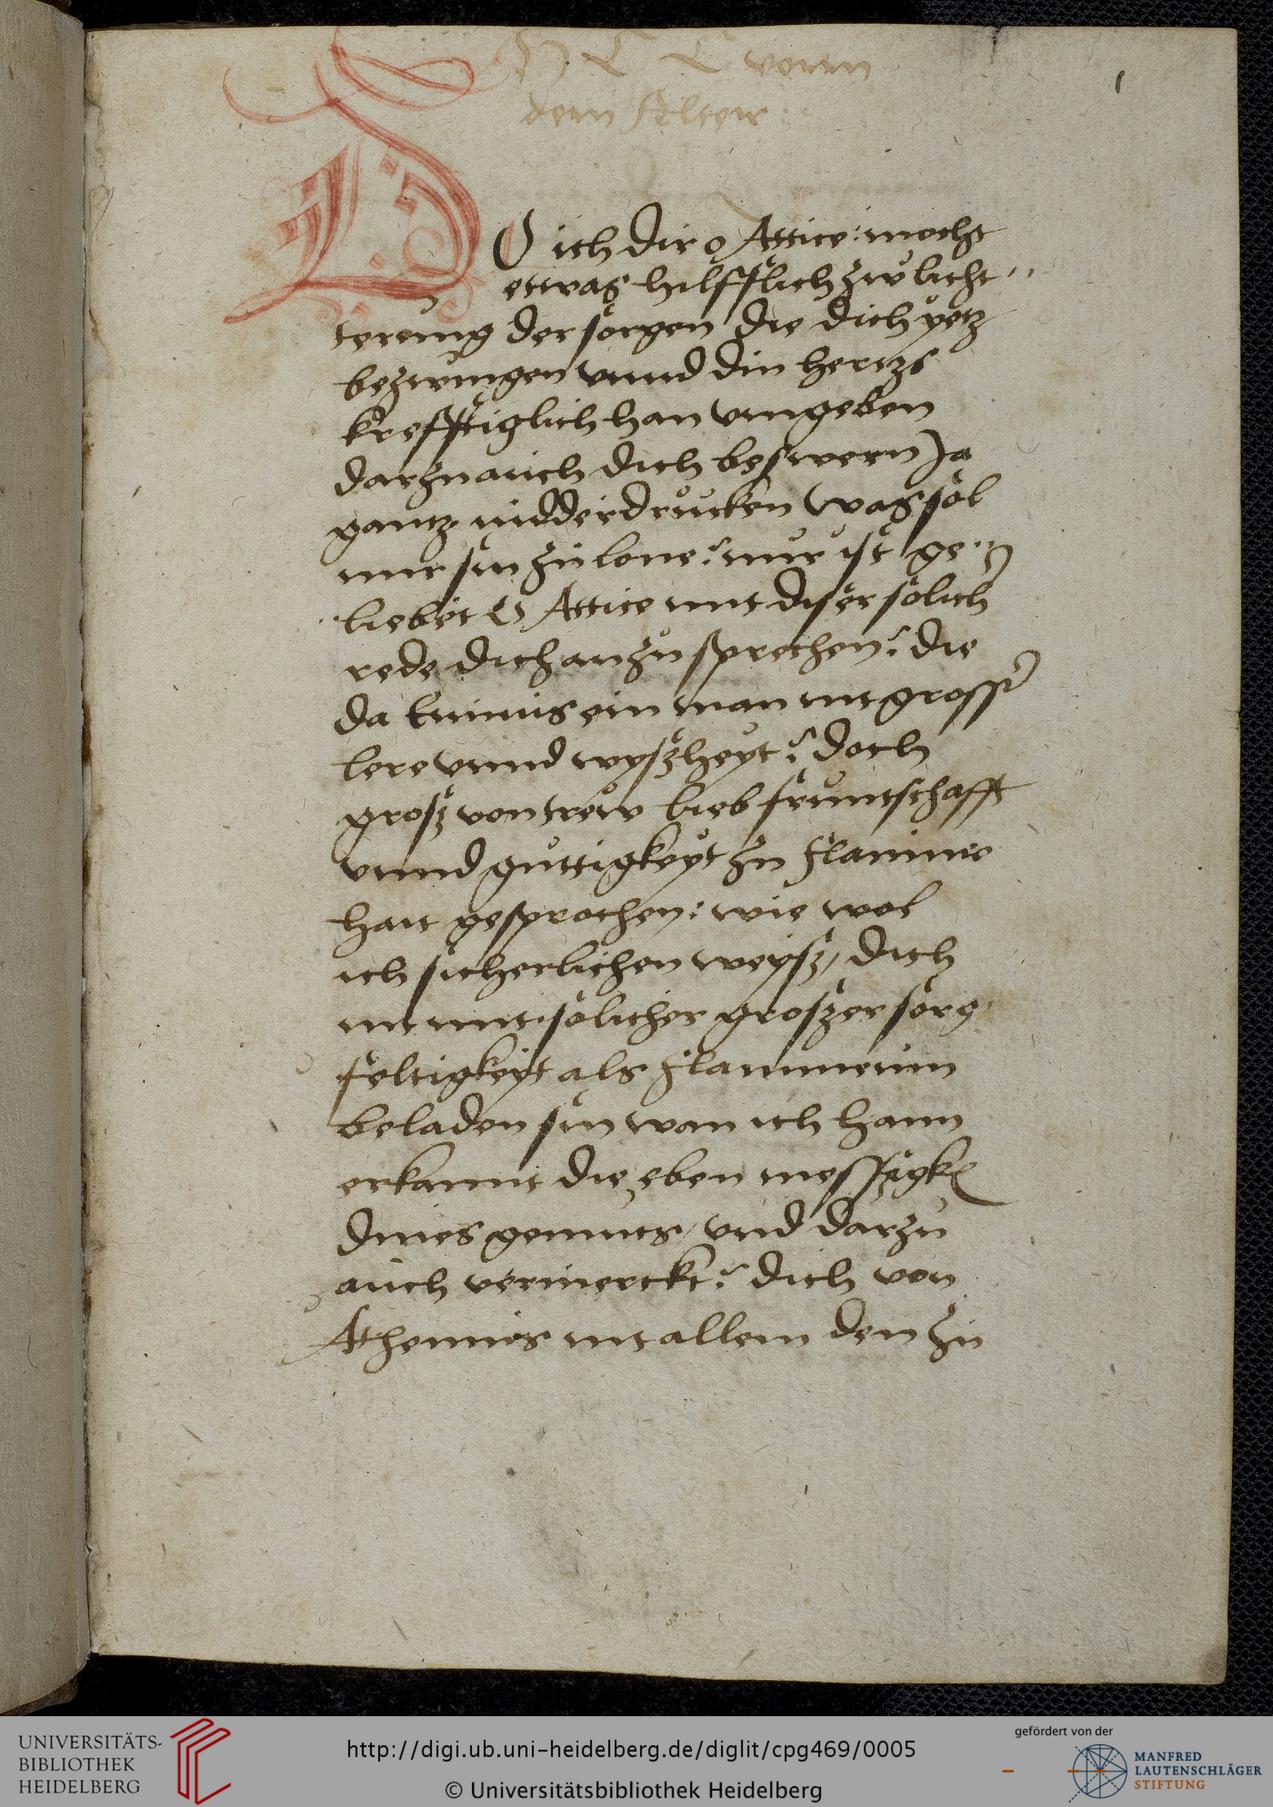 vonn
dem Alter
1
O ich dir o Attice: mocht
ettwas hilfflich zw licht
terung der sorgen die dich yetz
bezwungen vnnd din hertzs
krefftiglich han vmgeben
darzu auch dich beswern Ja
gantz nidderdrucken was sol
mir sin zu lone? mir ist ge
liebet O Attice mit diser solich
rede dich an zu sprechen? die
da Ennius ein man nit grosser
lere vnnd wyszheyt? doch
grosz von trew lieb fruntschafft
vnnd guttigkeyt zu Flaminio
hait gesprochen: wie wol
ich sicherlichen weysz, dich
nit mit solicher groszer sorg
feltigkeyt als Flammeum
beladen sin wan ich hann
erkannt die eben messigk
dines gemuts, vnd darzu
auch vermerckt? dich von
Athennis nit allem den zu
UNIVERSITÄTS-
BIBLIOTHEK
HEIDELBERG
http://digi.ub.uni-heidelberg.de/diglit/cpg469/0005
© Universitätsbibliothek Heidelberg
gefördert von der
MANFRED
LAUTENSCHLÄGER
STIFTUNG